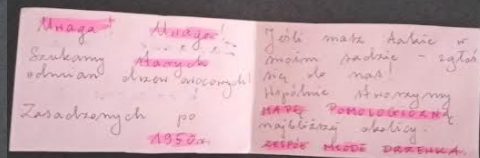 Uwaga! Uwaga!
Szukamy starych
odmian drzew owocowych!
Zasadzonych po
1950r.
Jeśli masz takie w
swoim sadzie - zgłoś
się do nas!
Wspólnie stworzymy
MAPĘ POMOLOGICZNĄ
najbliższej okolicy.
ZESPÓŁ MŁODE DRZEWKA